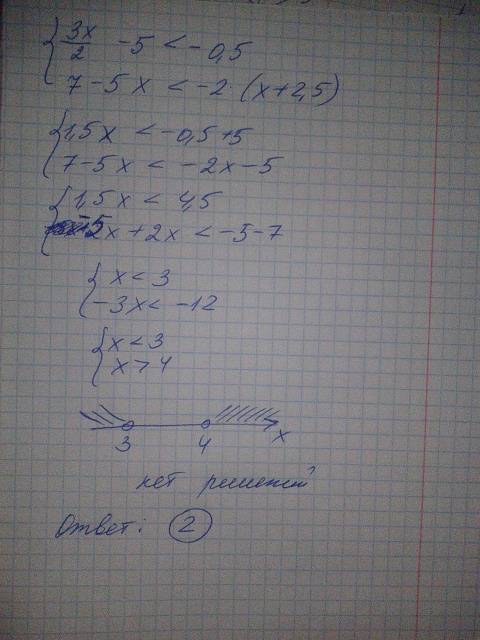 3x/2 -5 < -0,5
7-5x < -2·(x+2,5)
1,5x < -0,5+5
7-5x < -2x-5
1,5x < 4,5
-5x+2x < -5-7
x < 3
-3x < -12
x < 3
x > 4
3 4 x
нет решений
Ответ: 2